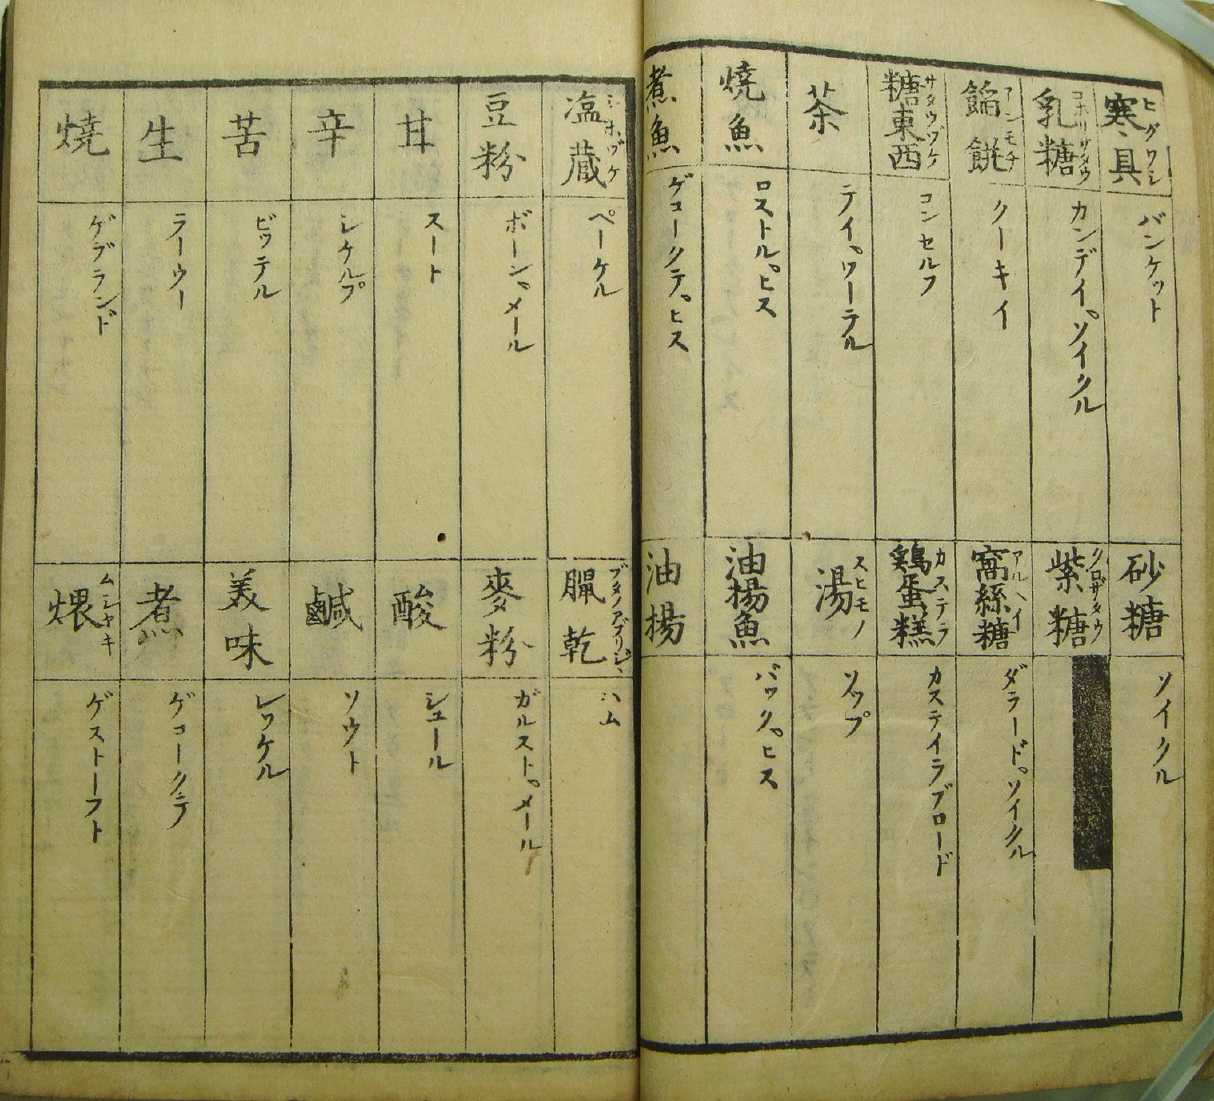 寒具 ヒグワシ
バンケット
砂糖
ソイクル
乳糖 コホリサタウ
カンデイ、ソイクル
紫糖 クロザタウ
餡餅 アンモチ
クーキイ
窩絲糖 アルヘイ
ダラード、ソイクル
糖東西 サタウヅケ
コンセルフ
鶏蛋糕 カステラ
カステイラブロード
茶
テイ、ワーテル
湯 スヒモノ
ソップ
焼魚
ロストル、ヒス
油揚魚
バック、ヒス
煮魚
ゲコークテ、ヒス
油揚
塩蔵 シホヅケ
ペーケル
臘乾
ハム
豆粉
ボーン、メール
麥粉
ガルスト、メール
甘
スート
酸
シュール
辛
シケルプ
鹹
ソウト
苦
ビッテル
美味
レッケル
生
ラーウー
煮
ゲコークテ
焼
ゲブランド
煨 ムシヤキ
ゲストーフト